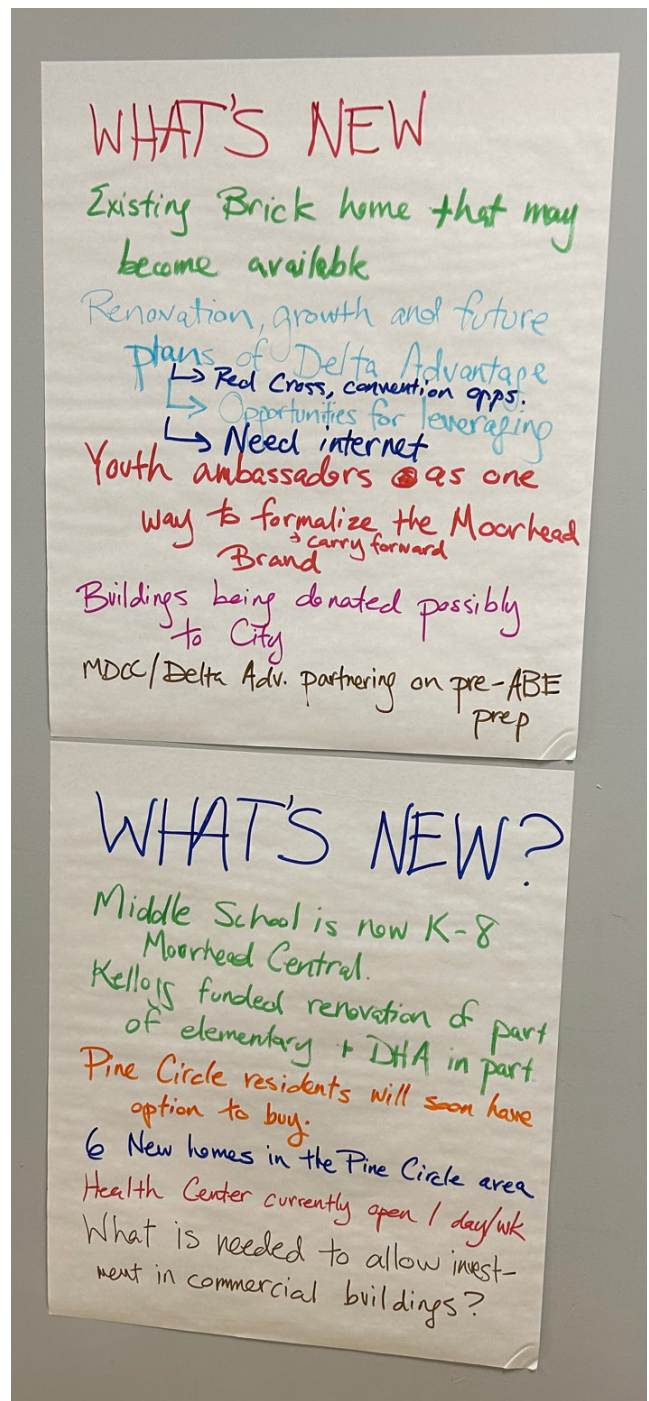 WHAT'S NEW
Existing Brick home that may
become available
Renovation, growth and future
plans of Delta Advantage
↳ Red Cross, convention opps.
↳ Opportunities for leveraging
↳ Need internet
Youth ambassadors as one
way to formalize the Moorhead
→ carry forward
Brand
Buildings being donated possibly
to City
MDCC/Delta Adv. partnering on pre-ABE
prep
WHAT'S NEW?
Middle School is now K-8
Moorhead Central.
Kellogg funded renovation of part
of elementary + DHA in part.
Pine Circle residents will soon have
option to buy.
6 New homes in the Pine Circle area
Health Center currently open 1 day/wk
What is needed to allow invest-
ment in commercial buildings?